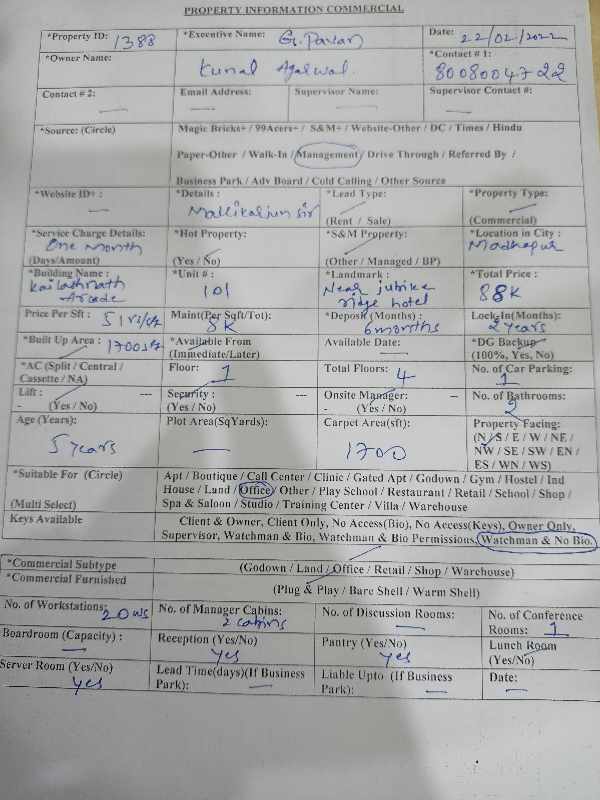 PROPERTY INFORMATION COMMERCIAL
*Property ID: 1388 *Executive Name: G. Pavan Date: 22/02/2022
*Owner Name: Kunal Agalwal *Contact # 1: 8008004722
Contact # 2: — Email Address: — Supervisor Name: — Supervisor Contact #: —
*Source: (Circle) Magic Bricks+ / 99Acers+ / S&M+ / Website-Other / DC / Times / Hindu
Paper-Other / Walk-In / Management / Drive Through / Referred By /
Business Park / Adv Board / Cold Calling / Other Source
*Website ID+ : — *Details : Mallikarjun sir *Lead Type: (Rent / Sale) *Property Type: (Commercial)
*Service Charge Details: One month (Days/Amount) *Hot Property: (Yes / No) *S&M Property: (Other / Managed / BP) *Location in City : Madhapur
*Building Name : Kailashnath Arcade *Unit # : 101 *Landmark : Near jubilee ridge hotel *Total Price : 88K
Price Per Sft : 51 rs/sft Maint(Per Sqft/Tot): 8K *Deposit (Months) : 6 months Lock-In(Months): 2 years
*Built Up Area : 1700 sft *Available From (Immediate/Later) Available Date: — *DG Backup (100%, Yes, No)
*AC (Split / Central / Cassette / NA) Floor: 1 Total Floors: 4 No. of Car Parking: 1
Lift : --- - (Yes / No) Security : --- (Yes / No) Onsite Manager: --- - (Yes / No) No. of Bathrooms: 2
Age (Years): 5 years Plot Area(SqYards): — Carpet Area(sft): 1700 Property Facing: (N / S / E / W / NE / NW / SE / SW / EN / ES / WN / WS)
*Suitable For (Circle) (Multi Select) Apt / Boutique / Call Center / Clinic / Gated Apt / Godown / Gym / Hostel / Ind
House / Land / Office / Other / Play School / Restaurant / Retail / School / Shop /
Spa & Saloon / Studio / Training Center / Villa / Warehouse
Keys Available Client & Owner, Client Only, No Access(Bio), No Access(Keys), Owner Only,
Supervisor, Watchman & Bio, Watchman & Bio Permissions, Watchman & No Bio.
*Commercial Subtype (Godown / Land / Office / Retail / Shop / Warehouse)
*Commercial Furnished (Plug & Play / Bare Shell / Warm Shell)
No. of Workstations: 20 ws No. of Manager Cabins: 2 cabins No. of Discussion Rooms: — No. of Conference Rooms: 1
Boardroom (Capacity) : — Reception (Yes/No) yes Pantry (Yes/No) yes Lunch Room (Yes/No)
Server Room (Yes/No) yes Lead Time(days)(If Business Park): — Liable Upto (If Business Park): — Date: —